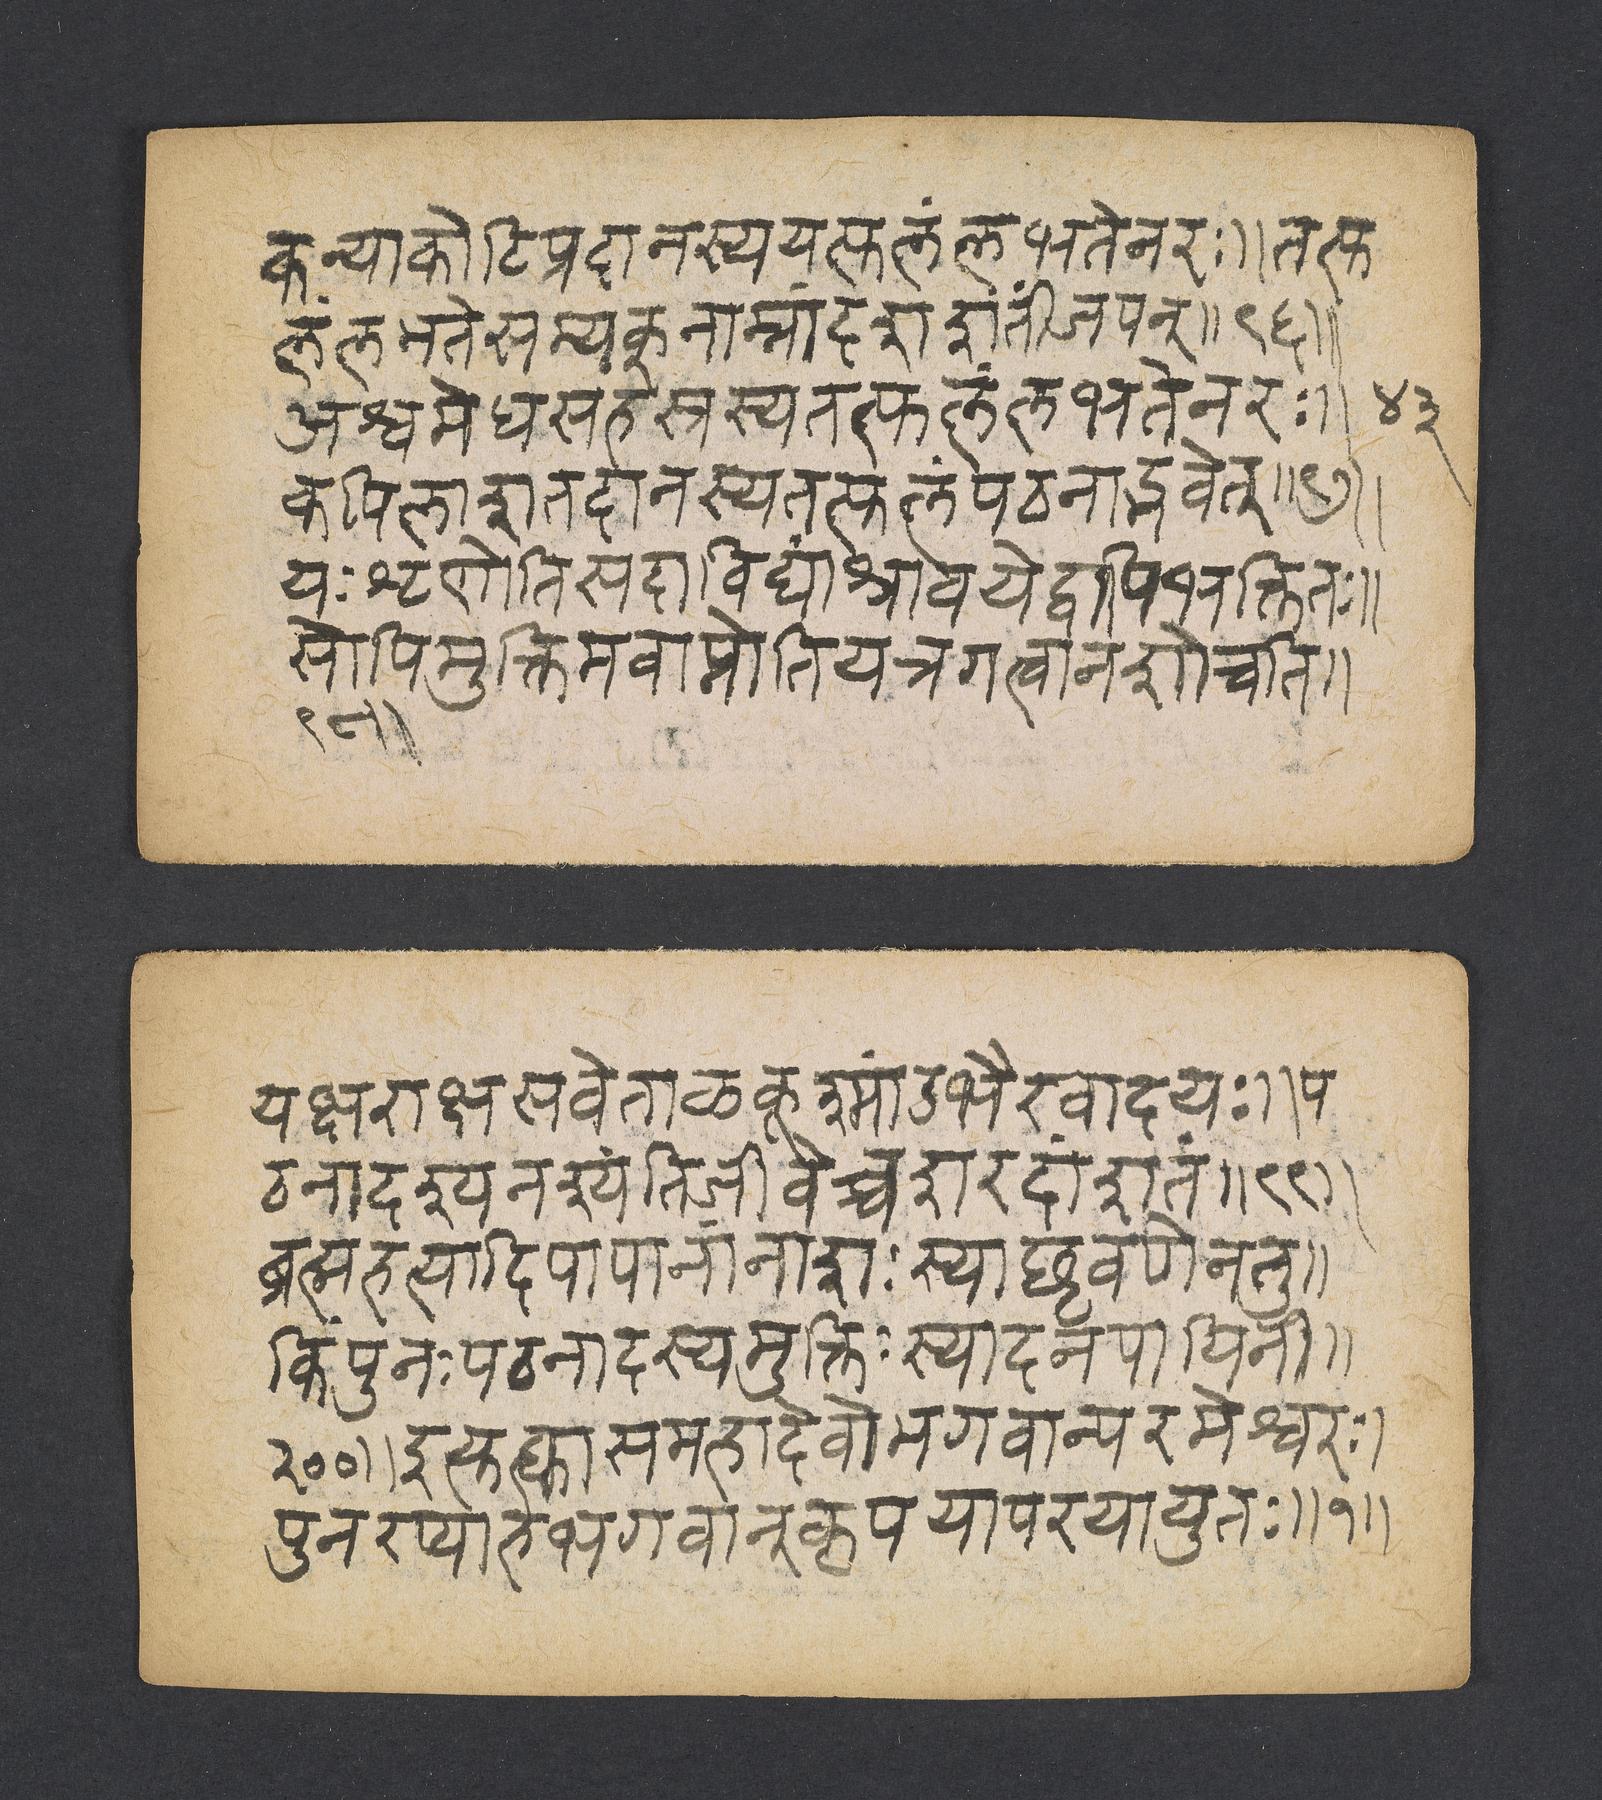 कन्याकोटिप्रदानस्ययत्फलंलभतेनरः॥तत्फ
लंलभतेसम्यक्नाम्नांदशशतींजपन्॥९६॥
अश्वमेधसहस्रस्यतत्फलंलभतेनरः॥
४३
कपिलाशतदानस्यतत्फलंपठनाद्भवेत्॥९७॥
यःशृणोतिसदाविद्यांश्रावयेद्वापिभक्तितः॥
सोपिमुक्तिमवाप्नोतियत्रगत्वानशोचति॥
९८॥
यक्षराक्षसवेताळकूश्मांडभैरवादयः॥प
ठनादश्यनश्यंतिजीवेच्चशरदांशतं॥९९॥
ब्रह्महत्यादिपापानांनाशःस्याछ्रवणेनतु॥
किंपुनःपठनादस्यमुक्तिःस्यादनपायिनी॥
२००॥इत्युक्त्वासमहादेवोभगवान्परमेश्वरः।
पुनरप्याहभगवान्कृपयापरयायुतः॥१॥